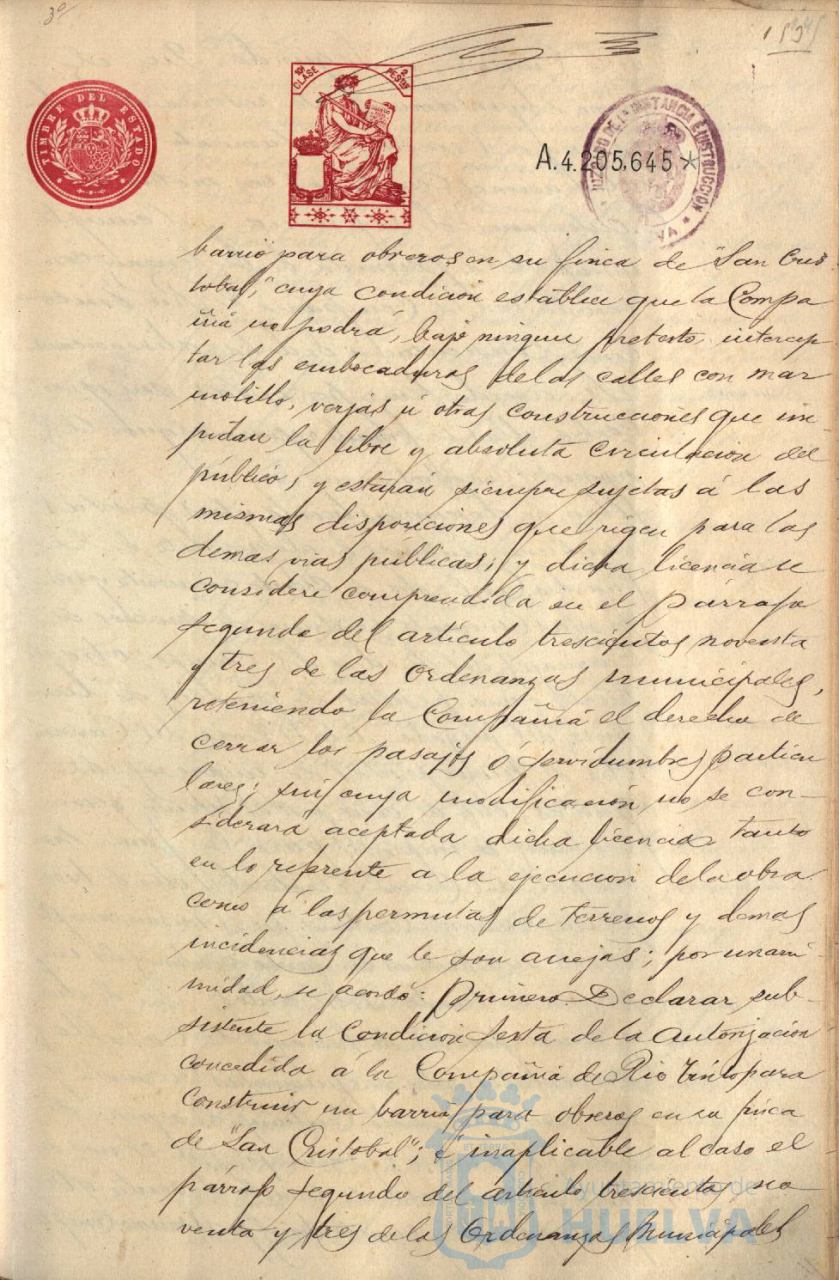 3º
TIMBRE DEL ESTADO
10ª CLASE
2 PESETAS
A.4.205.645*
JUZGADO DE 1ª INSTANCIA E INSTRUCCIÓN
barrio para obreros en su finca de "San Cris
tobal", cuya condición establece que la Compa
ñia no podrá, bajo ningun pretesto intercep
tar las embocaduras de las calles con mar
molillo, verjas ú otras construcciones que im
pidan la libre y absoluta circulacion del
público, y estarán siempre sujetas á las
mismas disposiciones que rigen para las
demas vias públicas; y dicha licencia se
considere comprendida en el párrafo
segundo del artículo trescientos noventa
y tres de las Ordenanzas municipales,
reteniendo la Compañia el derecho de
cerrar los pasajes ó servidumbres particu
lares; sin cuya modificación no se con-
siderará aceptada dicha licencia tanto
en lo referente á la ejecucion de la obra
como á las permutas de terrenos y demas
incidencias que le son anejas; por unani
midad, se acordó: Primero. Declarar sub-
sistente la Condicion sesta de la autorizacion
concedida á la Compañia de Rio Tinto para
construir un barrio para obreros en su finca
de "San Cristobal"; é inaplicable al caso el
párrafo segundo del articulo trescientos no
venta y tres de las Ordenanzas Municipales
Ayuntamiento de
HUELVA